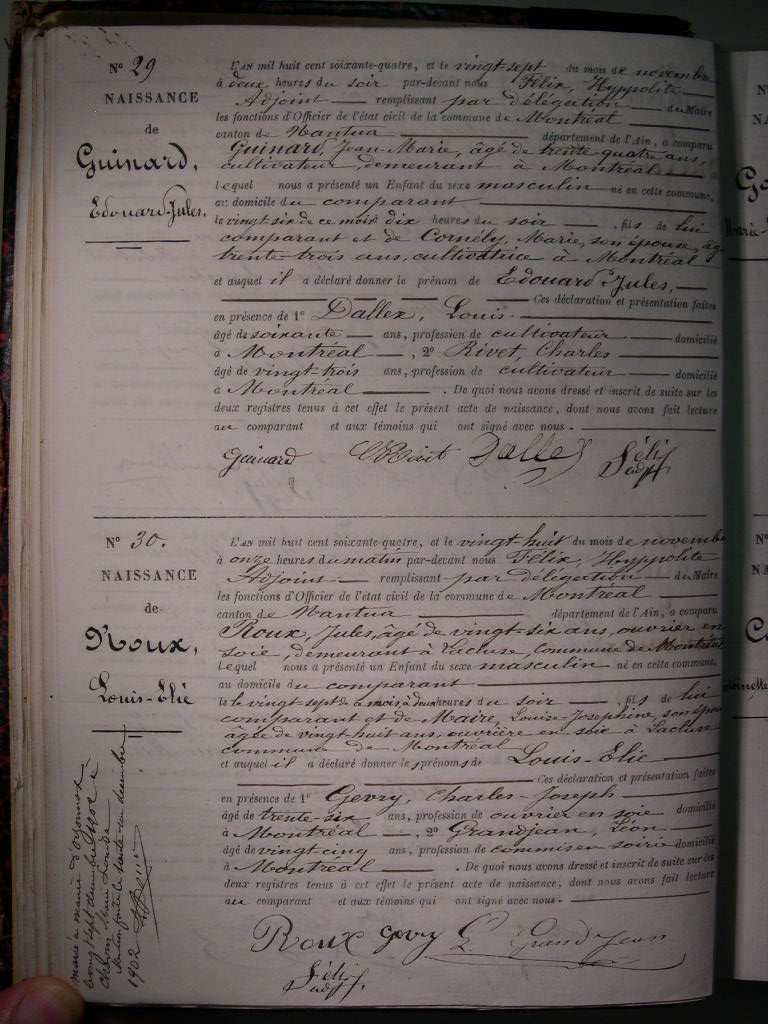 N° 29
NAISSANCE
de
Guinard,
Edouard Jules.
L'AN mil huit cent soixante-quatre, et le vingt-sept du mois de novembre
à deux heures du soir par-devant nous Félix, Hyppolite
Adjoint — remplissant par délégation — du Maire
les fonctions d'Officier de l'état civil de la commune de Montréal
canton de Nantua — département de l'Ain, a comparu
Guinard, Jean-Marie, âgé de trente-quatre ans,
cultivateur, demeurant à Montréal
lequel nous a présenté un Enfant du sexe masculin né en cette commune,
au domicile du comparant
le vingt six de ce mois à dix heures du soir — fils de lui
comparant et de Cornély, Marie, son épouse, âg
trente-trois ans, cultivatrice à Montréal
et auquel il a déclaré donner le prénom de Edouard Jules,
— Ces déclaration et présentation faites
en présence de 1° Dallex, Louis
âgé de soixante — ans, profession de cultivateur — domicilié
à Montréal —, 2° Rivet, Charles —
âgé de vingt-trois ans, profession de cultivateur — domicilié
à Montréal — . De quoi nous avons dressé et inscrit de suite sur les
deux registres tenus à cet effet le présent acte de naissance, dont nous avons fait lecture
au comparant et aux témoins qui ont signé avec nous. —
Guinard Rivet Dallex Félix
adjt
N° 30.
NAISSANCE
de
Roux,
Louis-Elie
L'AN mil huit cent soixante-quatre, et le vingt huit du mois de novembre
à onze heures du matin par-devant nous Félix, Hyppolite
Adjoint — remplissant par délégation — du Maire
les fonctions d'Officier de l'état civil de la commune de Montréal
canton de Nantua — département de l'Ain, a comparu
Roux, Jules, âgé de vingt-six ans, ouvrier en
soie, demeurant à Lacluse, commune de Montréal
lequel nous a présenté un Enfant du sexe masculin né en cette commune,
au domicile du comparant
le vingt sept de ce mois à deux heures du soir — fils de lui
comparant et de Maire, Louise Josephine, son épou
âgée de vingt huit ans, ouvrière en soie à Lacluse
commune de Montréal
et auquel il a déclaré donner les prénoms de Louis-Elie
— Ces déclaration et présentation faites
en présence de 1° Gevry, Charles-Joseph
âgé de trente-six ans, profession de ouvrier en soie domicilié
à Montréal —, 2° Grandjean, Léon
âgé de vingt cinq ans, profession de commis en soirie domicilié
à Montréal — . De quoi nous avons dressé et inscrit de suite sur les
deux registres tenus à cet effet le présent acte de naissance, dont nous avons fait lecture
au comparant et aux témoins qui ont signé avec nous. —
Roux Gevry L. Grandjean
Félix
adjt
marié à mairie d'Oyonnax
1902